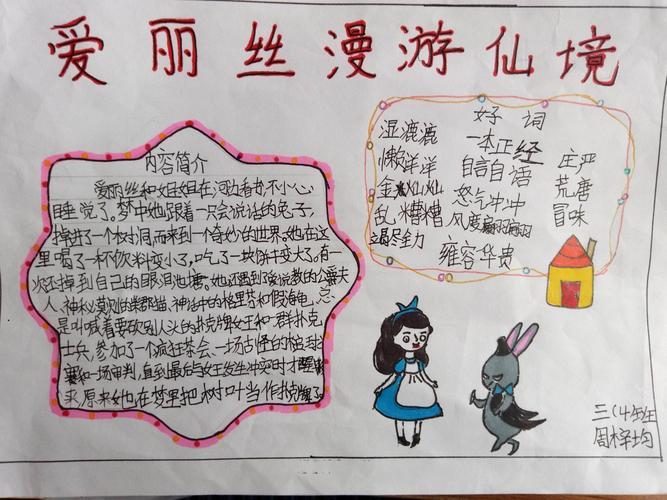 爱丽丝漫游仙境
内容简介
爱丽丝和姐姐在河边看书,不小心
睡觉了。梦中她跟着一只会说话的兔子,
掉进了一个树洞,而来到一个奇妙的世界。她在这
里喝了一杯饮料变小了,吃了一块饼干变大了。有
一次还掉到自己的眼泪池塘。她还遇到了爱说教的公爵夫
人、神秘莫测的柴郡猫、神话中的格里芬和假海龟、总
是叫喊着要砍别人头的扑克牌女王和一群扑克
士兵,参加了个疯狂茶会、一场古怪的槌球
赛和一场审判,直到最后与女王发生冲突时才醒
来原来她在梦里把树叶当作扑克牌了
好词
湿漉漉
一本正经
懒洋洋
自言自语
庄严
金灿灿
怒气冲冲
荒唐
乱糟糟
风度翩翩
冒味
竭尽全力
雍容华贵
三(4)班
周梓均